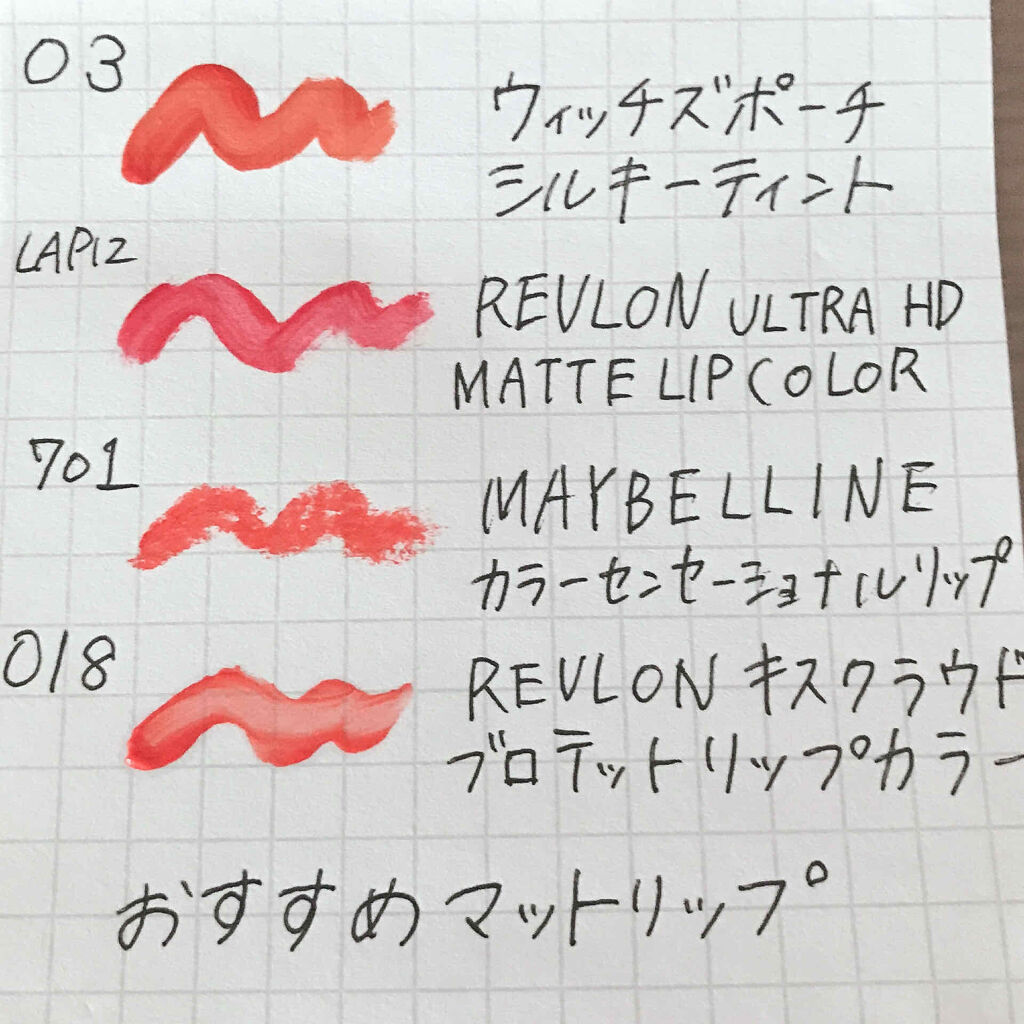 03
ウィッチズポーチ
シルキーティント
LAPIZ
REVLON ULTRA HD
MATTE LIP COLOR
701
MAYBELLINE
カラーセンセーショナルリップ
018
REVLON キスクラウド
ブロテットリップカラー
おすすめマットリップ